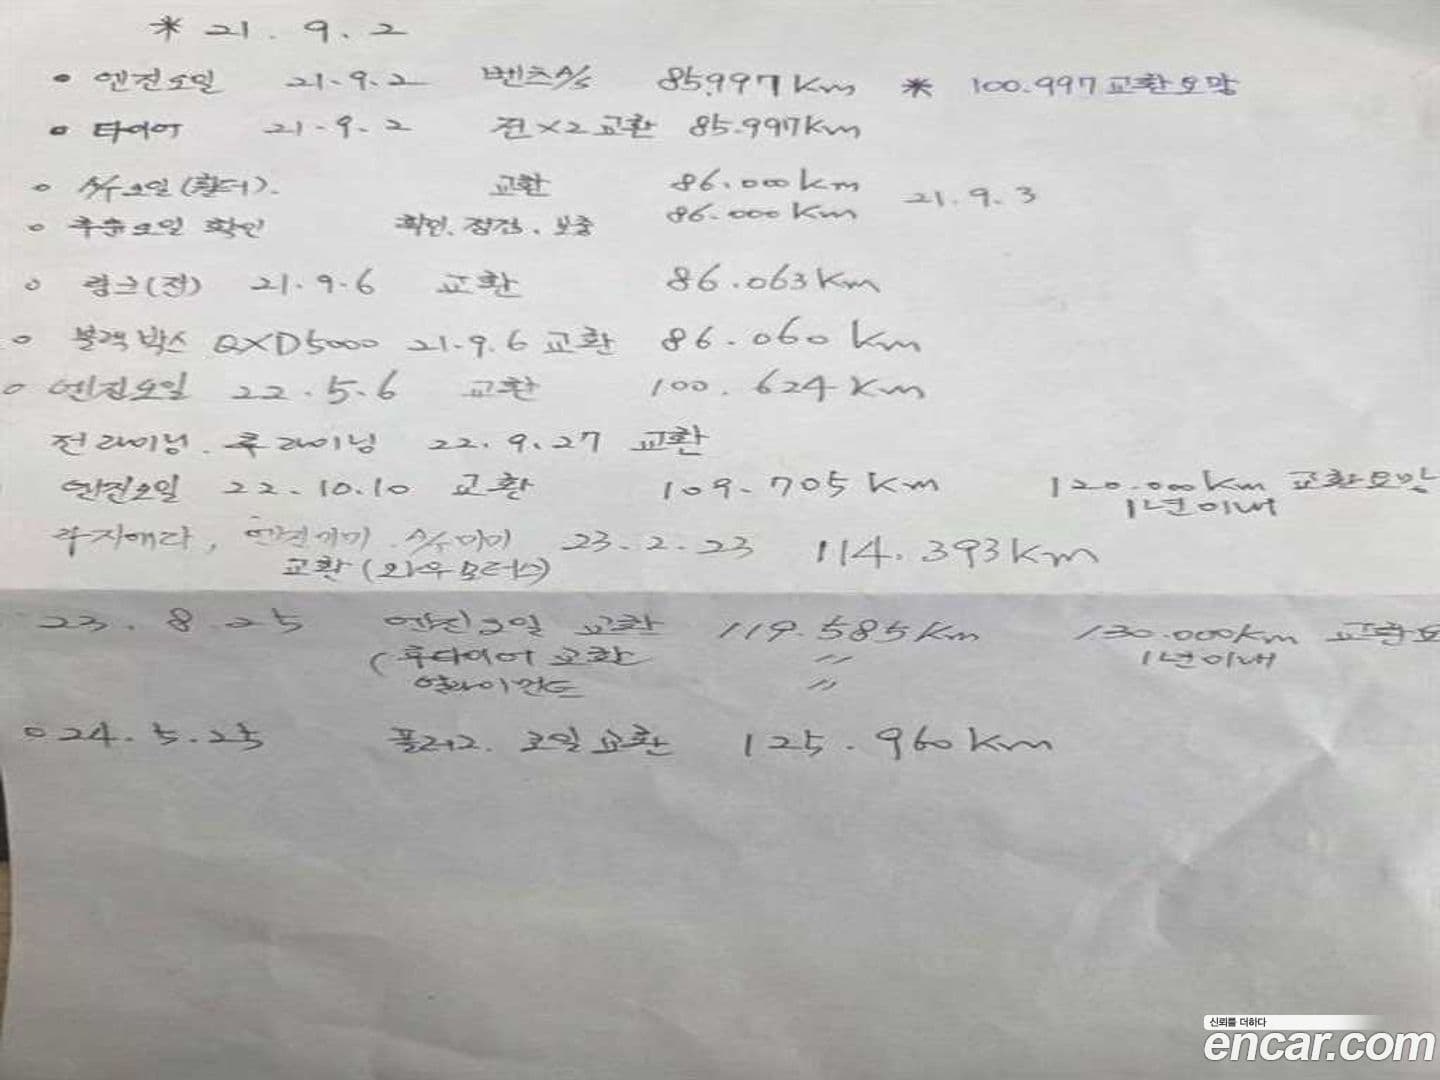 * 21. 9. 2
• 엔진오일 21-9.2 벤츠A/S 85,997Km * 100.997교환요망
• 타이어 21-9.2 전×2교환 85.997Km
○ 오일(휠터). 교환 86.000km 21.9.3
○ 오일 확인 확인.점검. 보충 86.000Km
○ 링크(전) 21.9.6 교환 86.063Km
○ 블랙박스 QXD5000 21.9.6 교환 86.060Km
○ 엔진오일 22.5.6 교환 100.624Km
전라이닝. 후라이닝 22.9.27 교환
엔진오일 22.10.10 교환 109.705Km 120.000Km 교환요망
1년이내
엔진미미 23.2.23 114.393Km
교환(와우모터스)
23.8.25 엔진오일 교환 119.585Km 130.000Km 교환요
(후타이어 교환 〃 1년이내
얼라이먼트 〃
○24.5.25 플러그. 코일교환 125.960Km
신뢰를 더하다
encar.com